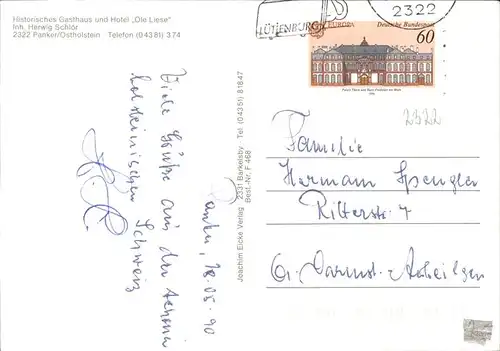 Historisches Gasthaus und Hotel „Ole Liese"
Inh. Herwig Schlör
2322 Panker/Ostholstein Telefon (04381) 374
LÜTJENBURG
2322
EUROPA Deutsche Bundespost
60
Palais Thurn und Taxis Frankfurt am Main
2322
Panker, 28.05.90
Viele Grüße aus der
holsteinischen Schweiz
Joachim Eicke Verlag 2331 Barkelsby Tel (04351) 81847
Best.-Nr. F 468
Familie
Hermann Spengler
Ritterstr. 7
61 Darmst.-Arheilgen